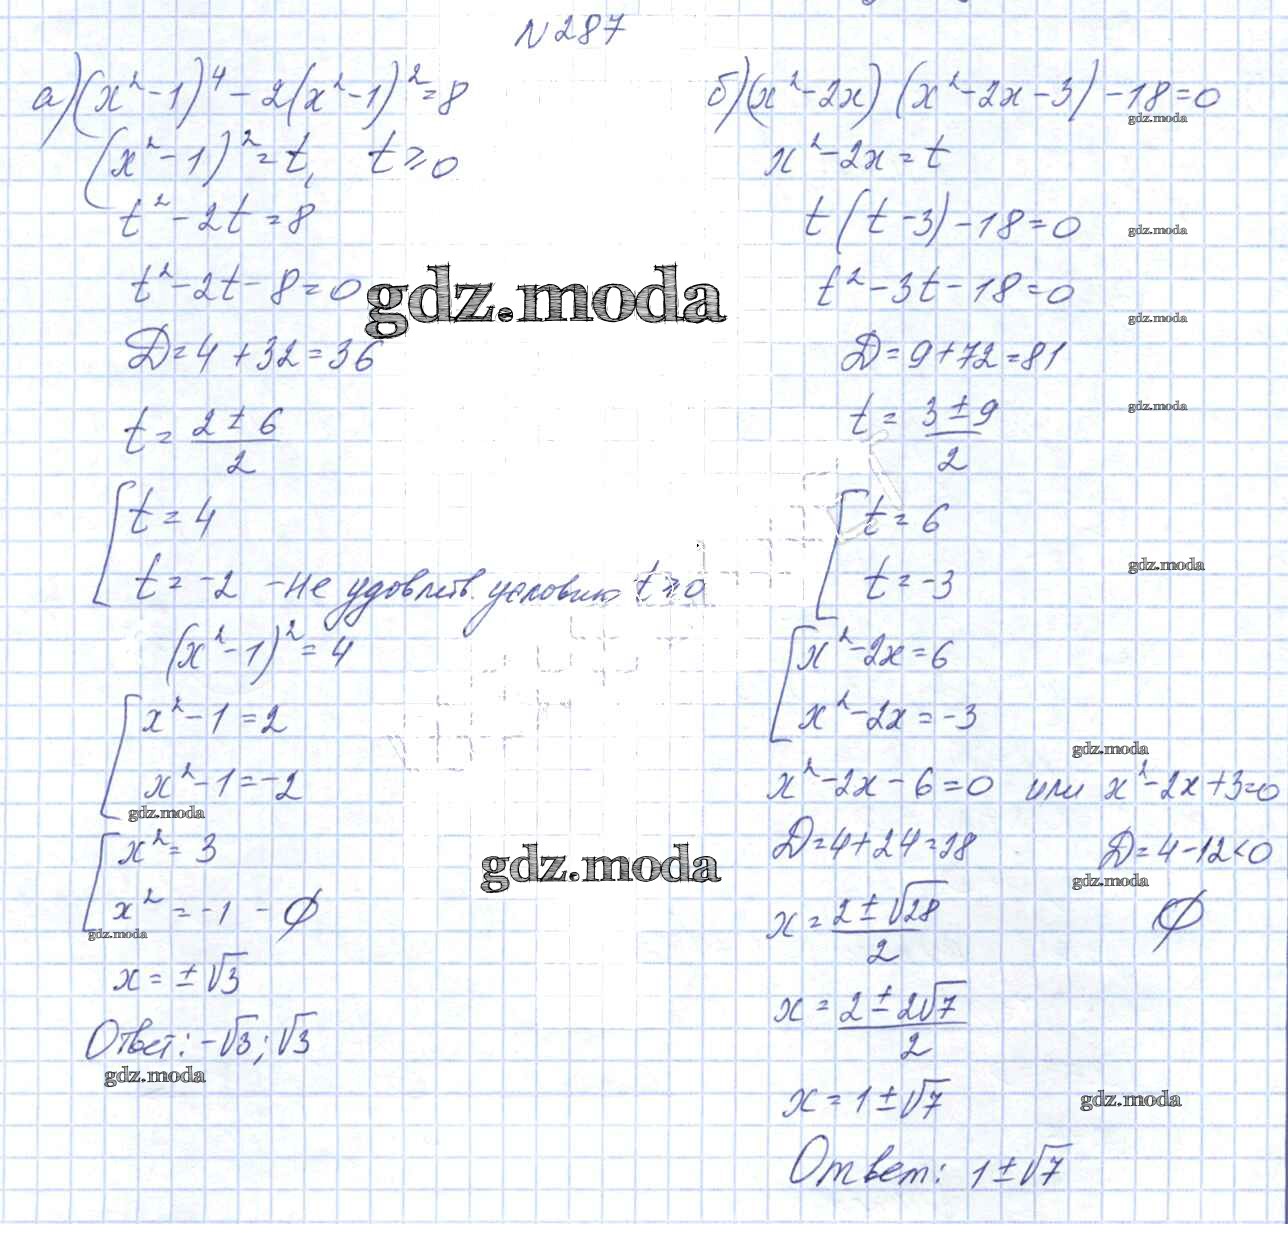 № 287
а) (x² - 1)⁴ - 2(x² - 1)² = 8
(x² - 1)² = t, t ≥ 0
t² - 2t = 8
t² - 2t - 8 = 0
gdz.moda
D = 4 + 32 = 36
t = (2 ± 6)/2
[ t = 4
t = -2 - не удовлетв. условию t ≥ 0
(x² - 1)² = 4
[ x² - 1 = 2
x² - 1 = -2
gdz.moda
[ x² = 3
gdz.moda
x² = -1 - ∅
gdz.moda
x = ±√3
Ответ: -√3; √3
gdz.moda
б) (x² - 2x) (x² - 2x - 3) - 18 = 0
gdz.moda
x² - 2x = t
t (t - 3) - 18 = 0
gdz.moda
t² - 3t - 18 = 0
gdz.moda
D = 9 + 72 = 81
t = (3 ± 9)/2
gdz.moda
[ t = 6
t = -3
gdz.moda
[ x² - 2x = 6
x² - 2x = -3
gdz.moda
x² - 2x - 6 = 0 или x² - 2x + 3 = 0
D = 4 + 24 = 28 D = 4 - 12 < 0
gdz.moda
x = (2 ± √28)/2 ∅
x = (2 ± 2√7)/2
x = 1 ± √7
gdz.moda
Ответ: 1 ± √7